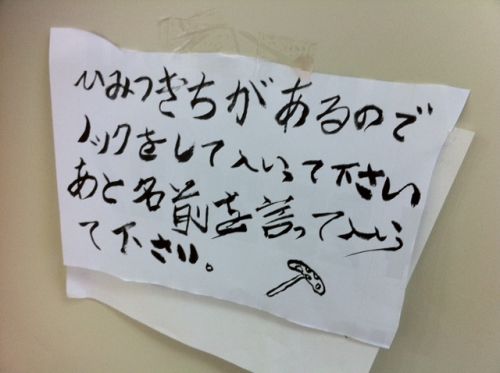 ひみつきちがあるので
ノックをして入いって下さい
あと名前を言って入いっ
て下さい。